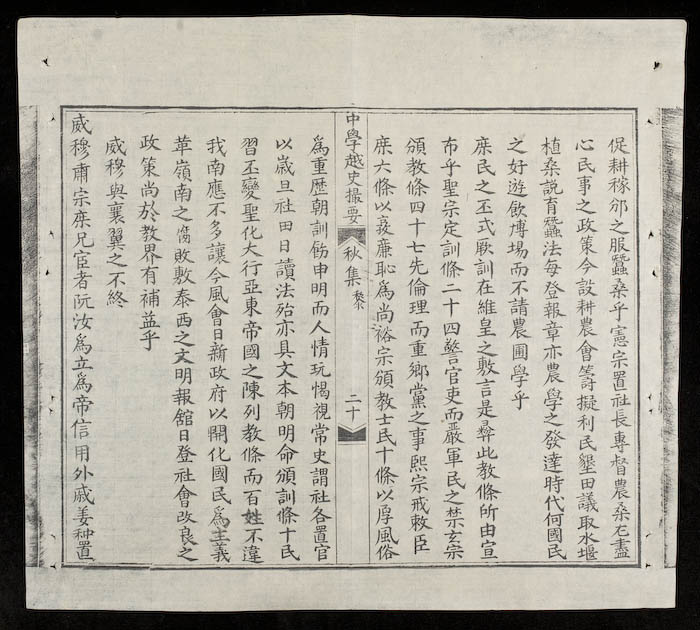 促耕稼邠之服蠶桑乎憲宗置社長專督農桑尤盡
心民事之政策今設耕農會籌擬利民墾田議取水堰
植桑説育蠶法每登報章亦農學之發達時代何國民
之好遊飲博場而不請農圃學乎
庶民之丕式厥訓在維皇之敷言是彛此教條所由宣
布乎聖宗定訓條二十四警官吏而嚴軍民之禁玄宗
頒教條四十七先倫理而重鄉黨之事熙宗戒敕臣
庶六條以廉恥為尚裕宗頒教士民十條以厚風俗
中學越史撮要 秋集 二十
爲重歷朝訓飭申明而人情玩愒視常史謂社各置官
以嵗旦社田日讀法殆亦具文本朝明命頒訓條十民
習丕變聖化大行亞東帝國之陳列教條而百姓不違
我南應不多讓今風會日新政府以開化國民爲主義
革嶺南之腐敗敷泰西之文明報舘日登社會改良之
政策尚於教界有補益乎
威穆與襄翼之不終
威穆肅宗庶兄宦者阮汝爲立爲帝信用外戚姜种置